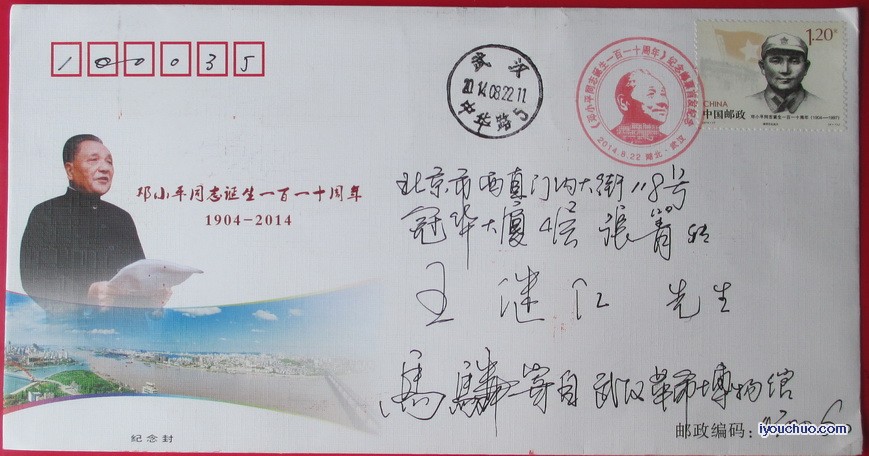 100035
武汉
2014.08.22.11
中华路5
《邓小平同志诞生一百一十周年》纪念邮票首发纪念
2014.8.22 湖北·武汉
1.20元
CHINA
中国邮政
邓小平同志诞生一百一十周年 (1904—1997)
邓小平同志诞生一百一十周年
1904-2014
北京市西直门内大街118号
冠华大厦4层 张青转
王继江 先生
馬騳 寄自 武汉革命博物馆
邮政编码：
纪念封
iyouchuo.com